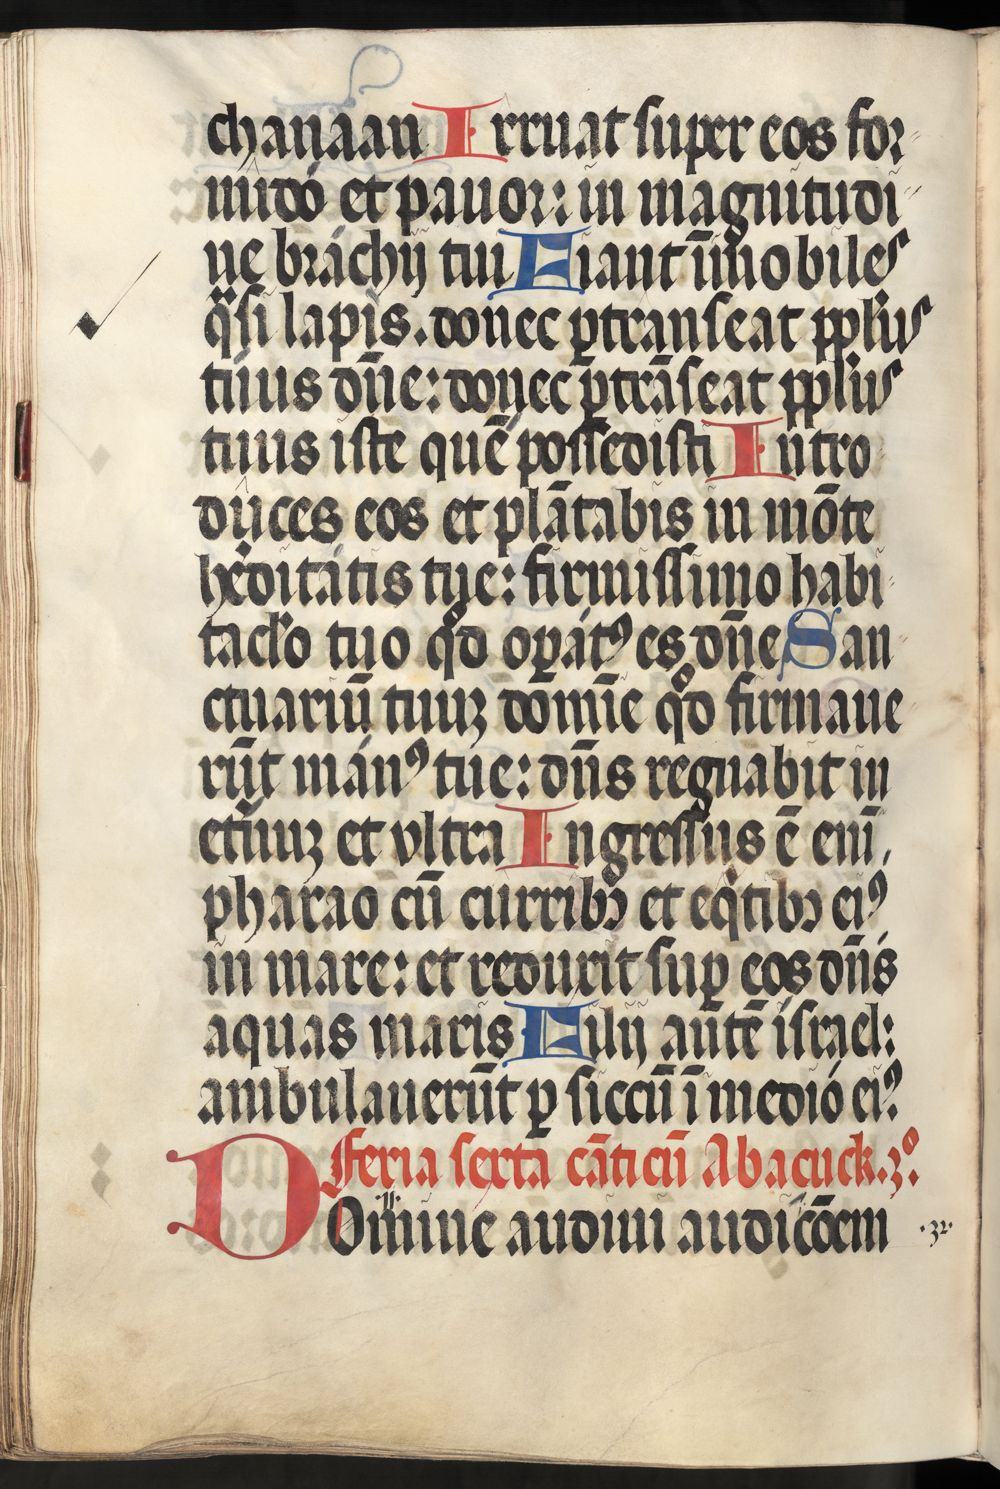 chanaan Irruat super eos for
mido et pauor: in magnitudi
ne brachij tui Fiant īmobiles
q̄si lapis. donec ꝑtranseat ppl̄us
tuus dn̄e: donec ꝑtrāseat ppl̄us
tuus iste quē possedisti Intro
duces eos et plātabis in mōte
he͛ditatis tue: firmissimo habi
tac̄lo tuo qͦd oꝑatꝰ es dn̄e San
ctuariū tuuꝫ domīe qͦd firmaue
rūt manꝰ tue: dn̄s regnabit in
et̄nuꝫ et vltra Ingressus ē enī
pharao cū curribꝫ et eqͥtibꝫ eiꝰ
in mare: et reduxit suꝑ eos dn̄s
aquas maris Filij autē israel:
ambulauerūt ꝑ siccū ī medio eiꝰ
Feria sexta cāticū Abacuck. 3°.
DOmine audiui audicōem .32.